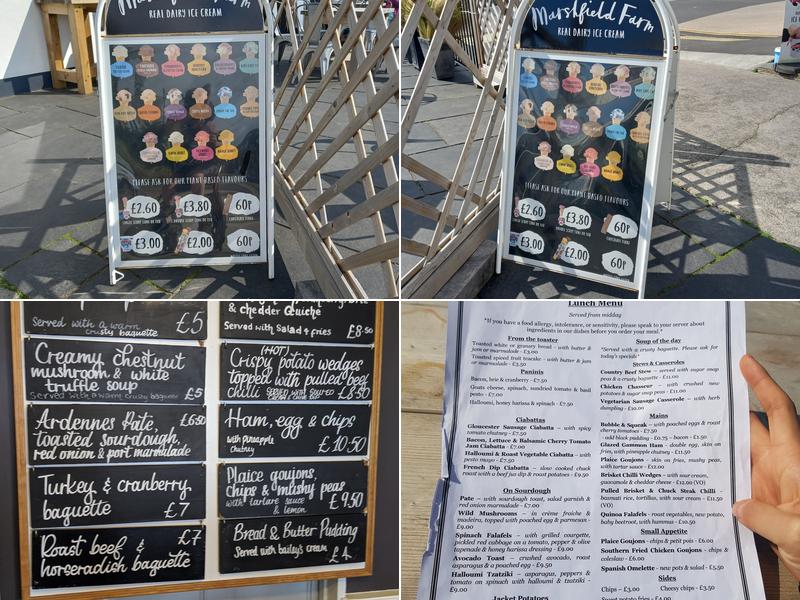 Marshfield Farm
REAL DAIRY ICE CREAM
PLEASE ASK FOR OUR PLANT BASED FLAVOURS
£2.60
£3.80
60p
£3.00
£2.00
60p
Marshfield Farm
REAL DAIRY ICE CREAM
PLEASE ASK FOR OUR PLANT BASED FLAVOURS
£2.60
£3.80
60p
£3.00
£2.00
60p
Served with a warm
crusty baguette £5
Creamy chestnut
mushroom & white
truffle soup
Served with a warm crusty baguette £5
Ardennes Pate, £6.50
toasted sourdough,
red onion & port marmalade
Turkey & cranberry
baguette £7
Roast beef & £7
horseradish baguette
& chedder Quiche
Served with Salad & fries £8.50
(HOT)
Crispy potato wedges
topped with pulled beef
chilli SERVED WITH SOURED £8.50
Ham, egg & chips
with pineapple
chutney £10.50
Plaice goujons,
chips & mushy peas
with tartare sauce
& lemon £9.50
Bread & Butter Pudding
Served with bailey's cream £4
Lunch Menu
Served from midday
*If you have a food allergy, intolerance, or sensitivity, please speak to your server about
ingredients in our dishes before you order your meal.*
From the toaster
Toasted white or granary bread - with butter &
jam or marmalade - £3.00
Toasted spiced fruit teacake - with butter & jam
or marmalade - £3.50
Paninis
Bacon, brie & cranberry - £7.50
Goats cheese, spinach, sundried tomato & basil
pesto - £7.00
Halloumi, honey harissa & spinach - £7.50
Ciabattas
Gloucester Sausage Ciabatta – with spicy
tomato chutney - £7.50
Bacon, Lettuce & Balsamic Cherry Tomato
Jam Ciabatta - £7.00
Halloumi & Roast Vegetable Ciabatta – with
pesto mayo - £7.50
French Dip Ciabatta – slow cooked chuck
roast with a beef jus dip & roast potatoes - £9.50
On Sourdough
Pate – with sourdough toast, salad garnish &
red onion marmalade - £7.00
Wild Mushrooms – in crème fraiche &
madeira, topped with poached egg & parmesan -
£9.00
Spinach Falafels – with grilled courgette,
pickled red cabbage on a tomato, pepper & olive
tapenade & honey harissa dressing - £9.00
Avocado Toast – crushed avocado, roast
asparagus & a poached egg - £9.50
Halloumi Tzatziki – asparagus, peppers &
tomato on spinach with halloumi & tzatziki -
£9.00
Jacket Potatoes
Soup of the day
*Served with a crusty baguette. Please ask for
today's specials*
Stews & Casseroles
Country Beef Stew – served with sugar snap
peas & a crusty baguette - £11.00
Chicken Chasseur – with crushed new
potatoes & sugar snap peas - £11.00
Vegetarian Sausage Casserole – with herb
dumpling - £10.00
Mains
Bubble & Squeak – with poached eggs & roast
cherry tomatoes - £7.50
- add black pudding - £0.75 – bacon - £1.50
Glazed Gammon Ham - double egg, skin on
fries, with pineapple chutney - £11.50
Plaice Goujons - skin on fries, mushy peas,
with tartar sauce - £12.00
Brisket Chilli Wedges – with sour cream,
guacamole & cheddar cheese - £12.00 (VO)
Pulled Brisket & Chuck Steak Chilli -
basmati rice, tortillas, with sour cream - £11.50
(VO)
Quinoa Falafels - roast vegetables, new potato,
baby beetroot, with hummus - £10.50
Small Appetite
Plaice Goujons - chips & petit pois - £6.00
Southern Fried Chicken Goujons - chips &
coleslaw - £6.00
Spanish Omelette – new pots & salad - £5.50
Sides
Chips – £3.00 Cheesy chips - £3.50
Sweet potato fries - £4.00